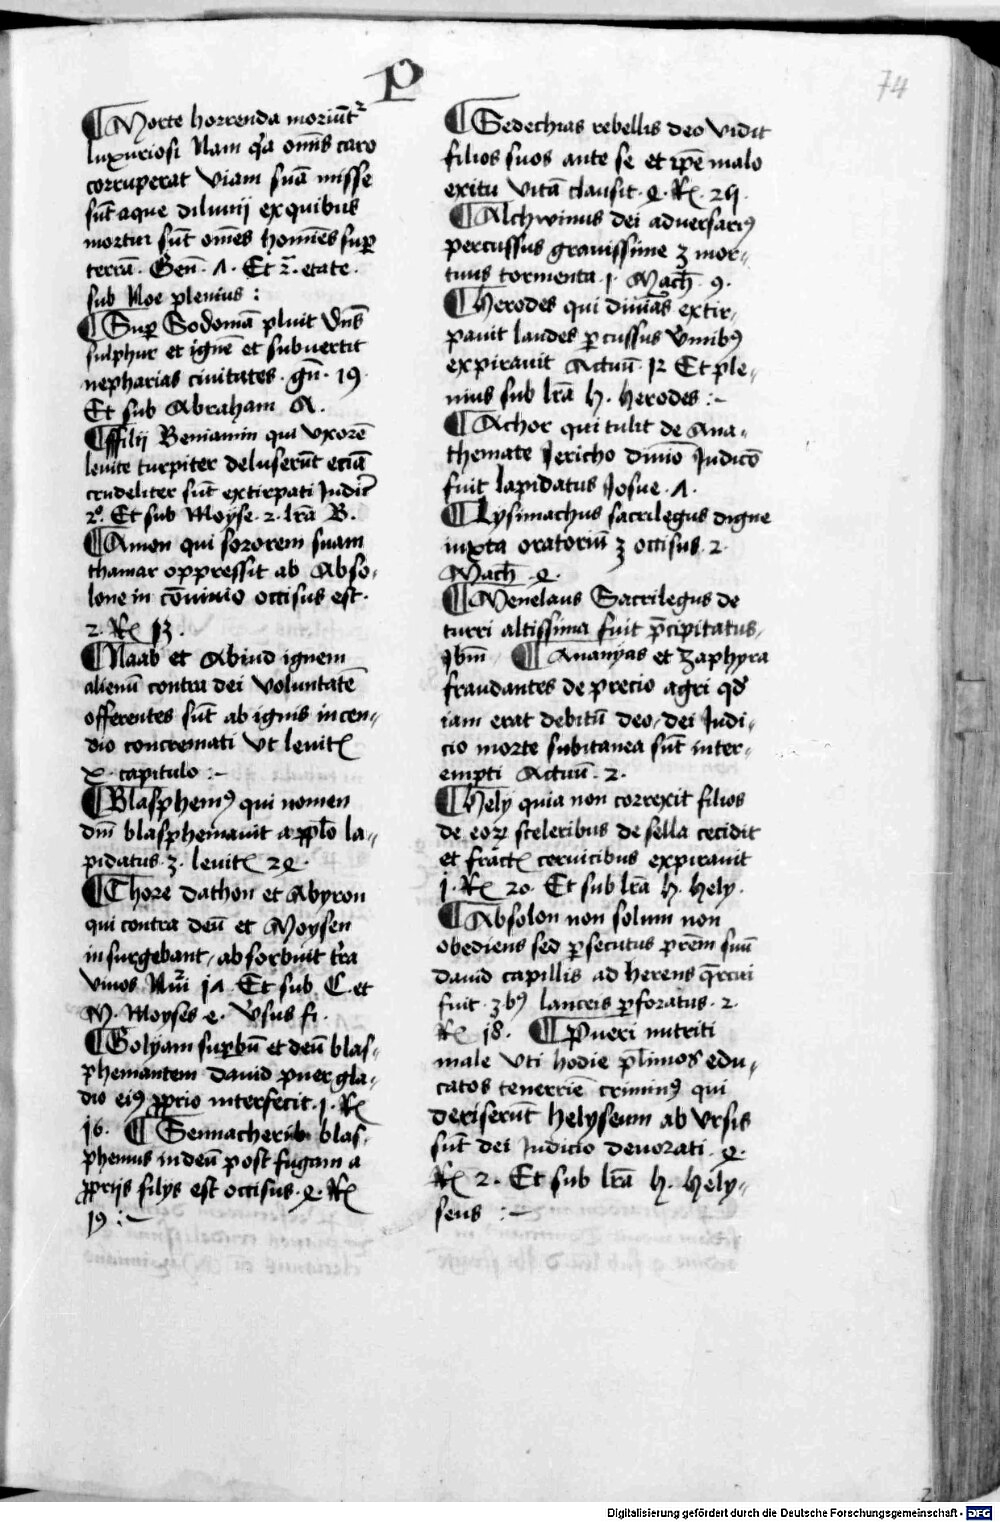 P
74
¶ Morte horrenda moriūtͬ
luxuriosi Nam q̇a om̄s caro
corruperat viam suā misse
sūt aque diluuij ex quibus
mortui sūt om̄es homīes suꝑ
terrā · Geñ · ʌ · Et 2ͣ · etate ·
sub Noe plenius :
¶ Suꝑ Sodomā pluit dn̄s
sulphur et ignē et subuertit
nepharias ciuitates · gn̄ · 19 ·
Et sub Abraham A ·
¶ ffilij Beniamin qui vxorē
leuite turpiter deluserūt eciā
crudeliter sūt extirpati Judic̄
20 · Et sub Moyse · 2 · lr̄a B ·
¶ Amon qui sororem suam
thamar oppressit ab Abso-
lone in cōuiuio occisus est ·
2 · Rꝭ 13 ·
¶ Naab et Abiud ignem
alienū contra dei voluntatē
offerentes sūt ab ignis incen-
dio concremati vt leuitꝭ
x · capitulo :-
¶ Blasphemꝰ qui nomen
dn̄i blasphemauit a pp̄lo la-
pidatus · ꝫ · leuitꝭ 2ꝗ ·
¶ Chore dathon et Abyron
qui contra deū et Moysen
insurgebant, absorbuit tr̄a
viuos Nūi 1ʌ · Et sub C · et
M · Moyses · e · v̄sus fi ·
¶ Golyam suꝑbū et deū blas-
phemantem dauid puer gla-
dio eiꝰ ꝓprio interfecit · 1 · Rꝭ
16 · ¶ Sennacherib blas-
phemus in deū post fugam a
ꝓprijs filijs est occisus · ꝗ · Rꝭ
19 :-
¶ Sedechias rebellis deo vidit
filios suos ante se et ip̄e malo
exitu vitā clausit · ꝗ · Rꝭ · 2ꝗ ·
¶ Alchwinus dei aduersariꝰ
percussus grauissime ꝫ mor-
tuus tormenta · 1 · Mach̄ · 9 ·
¶ Herodes qui diuinas extir-
pauit laudes ꝑcussus v̄mibꝰ
expirauit Actuū · 12 Et ple-
nius sub lr̄a h · herodes :-
¶ Achor qui tulit de Ana-
themate Jericho diuīo Judicō
fuit lapidatus Josue · ʌ ·
¶ Lysimachus sacrilegus digne
iuxta oratoriū ꝫ occisus · 2 ·
Mach̄ · ꝗ ·
¶ Menelaus Sacrilegus de
turri altissima fuit p̄cipitatus,
Jbm̄ · ¶ Ananyas et Zaphyra
fraudantes de precio agri qd̄
iam erat debitū deo, dei Judi-
cio morte subitanea sūt inter-
empti Actuū · 2 ·
¶ Hely quia non correxit filios
de eoꝝ sceleribus de sella cecidit
et fractꝭ ceruicibus expirauit
1 · Rꝭ 20 · Et sub lr̄a h · hely ·
¶ Absolon non solum non
obediens sed ꝑsecutus pr̄em suū
dauid capillis ad herens q̄rcui
fuit · 3bꝰ lanceis ꝑforatus · 2 ·
Rꝭ 18 · ¶ Pueri nutriti
male vti hodie pl̄imos edu-
catos tenerrie criminꝰ qui
deriserūt helyseum ab vrsis
sūt dei Judicio deuorati · ꝗ ·
Rꝭ 2 · Et sub lr̄a h · hely-
seus :-
Digitalisierung gefördert durch die Deutsche Forschungsgemeinschaft - DFG